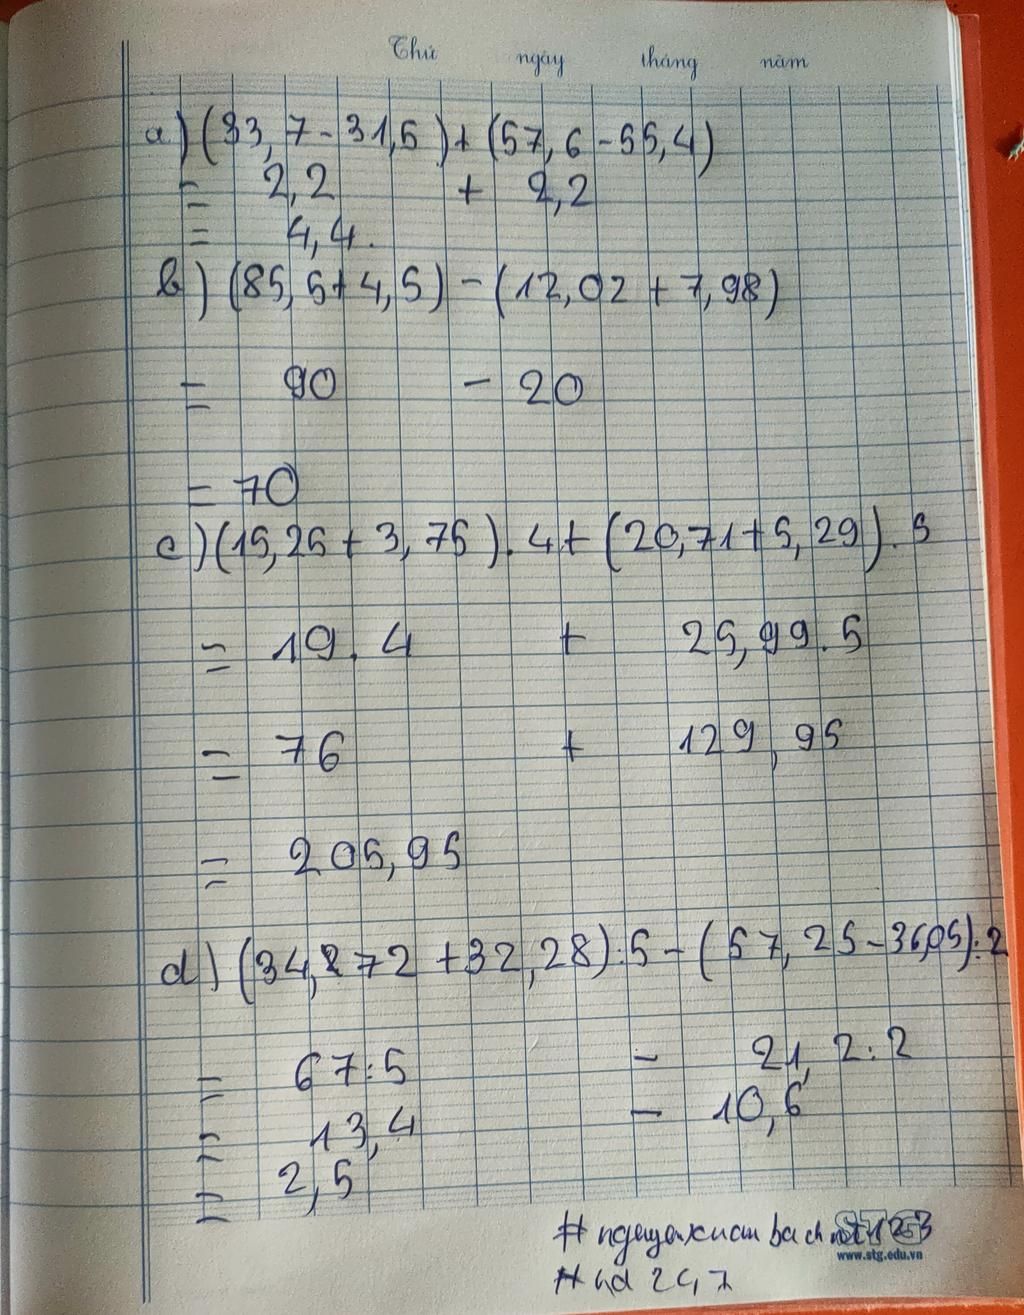 Thứ ngày tháng năm
a) (33,7 - 31,5) + (57,6 - 55,4)
= 2,2 + 2,2
= 4,4.
b) (85,5 + 4,5) - (12,02 + 7,98)
= 90 - 20
= 70
c) (15,25 + 3,75) . 4 + (20,71 + 5,29) . 5
= 19 . 4 + 25,99 . 5
= 76 + 129,95
= 205,95
d) (34,272 + 32,28) : 5 - (57,25 - 36,05) : 2
= 67 : 5 - 21,2 : 2
= 13,4 - 10,6
= 2,5
STG
www.stg.edu.vn